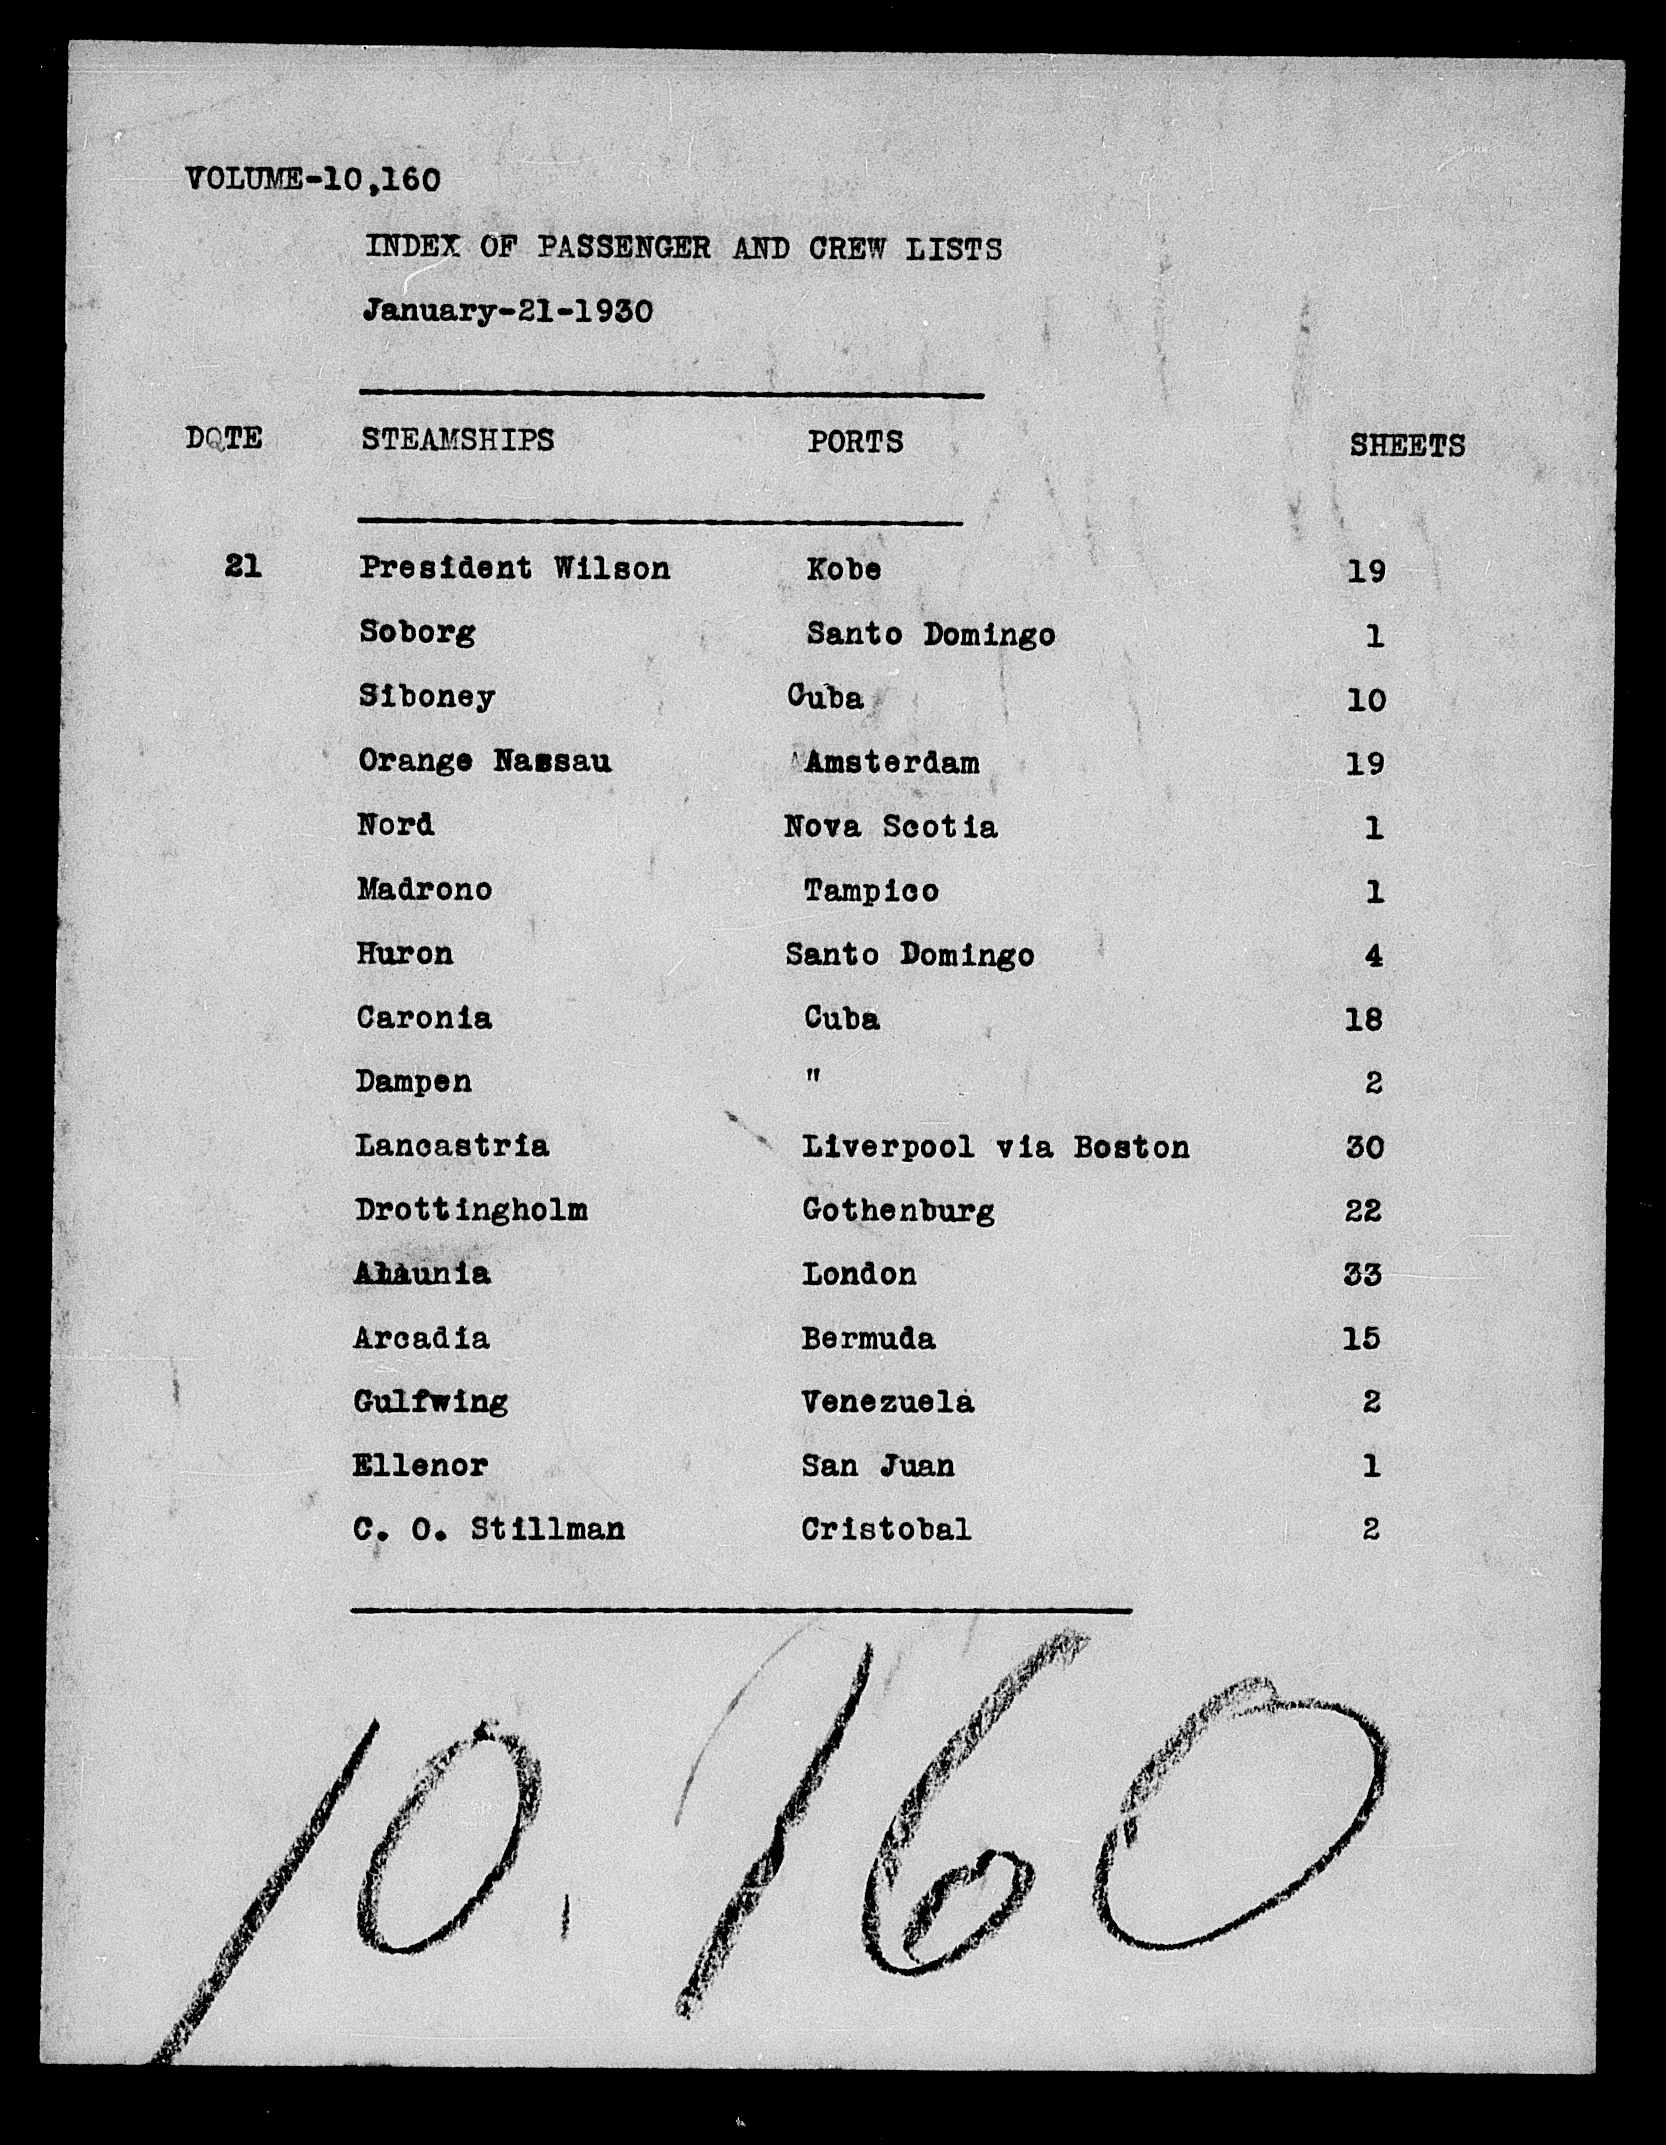 VOLUME-10,160
INDEX OF PASSENGER AND CREW LISTS
January-21-1930
DQTE STEAMSHIPS PORTS SHEETS
21 President Wilson Kobe 19
Soborg Santo Domingo 1
Siboney Cuba 10
Orange Nassau Amsterdam 19
Nord Nova Scotia 1
Madrono Tampico 1
Huron Santo Domingo 4
Caronia Cuba 18
Dampen " 2
Lancastria Liverpool via Boston 30
Drottingholm Gothenburg 22
London 33
Arcadia Bermuda 15
Gulfwing Venezuela 2
Ellenor San Juan 1
C. O. Stillman Cristobal 2
10.160